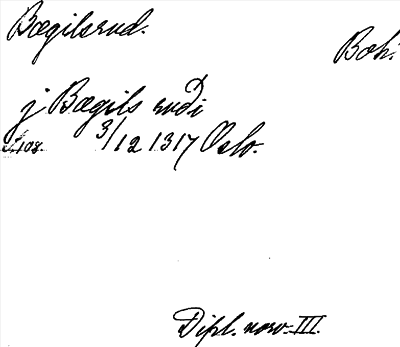 Bægilsrud.
Boh.
j Bægils rudi
S. 108. 3/12 1317 Oslo.
Dipl. norv. III.